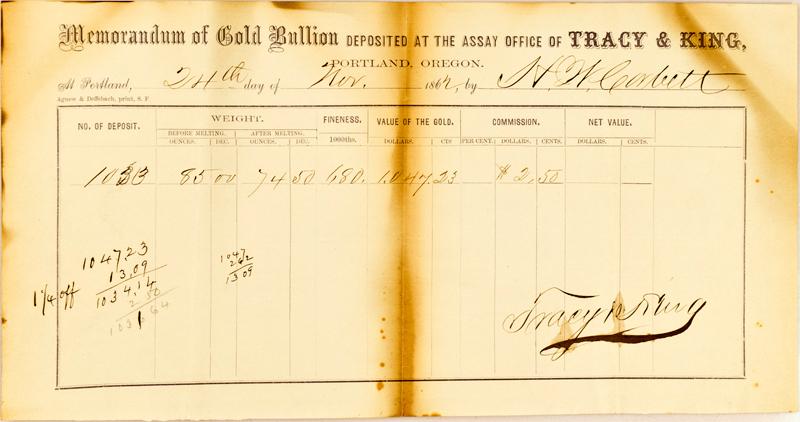 Memorandum of Gold Bullion DEPOSITED AT THE ASSAY OFFICE OF TRACY & KING,
PORTLAND, OREGON.
At Portland, 24th day of Nov. 1862, by H. W. Corbett
Agnew & Deffebach, print, S. F.
NO. OF DEPOSIT. WEIGHT. FINENESS. VALUE OF THE GOLD. COMMISSION. NET VALUE.
BEFORE MELTING. AFTER MELTING. 1000ths.
OUNCES. DEC. OUNCES. DEC. DOLLARS. CTS PER CENT. DOLLARS. CENTS. DOLLARS. CENTS.
85 00 74 50 680. 1.047.23 $ 2.50
1047.23
13.09
1¼ off 1034.14
2 50
1031.64
1047
262
1309
Tracy & King